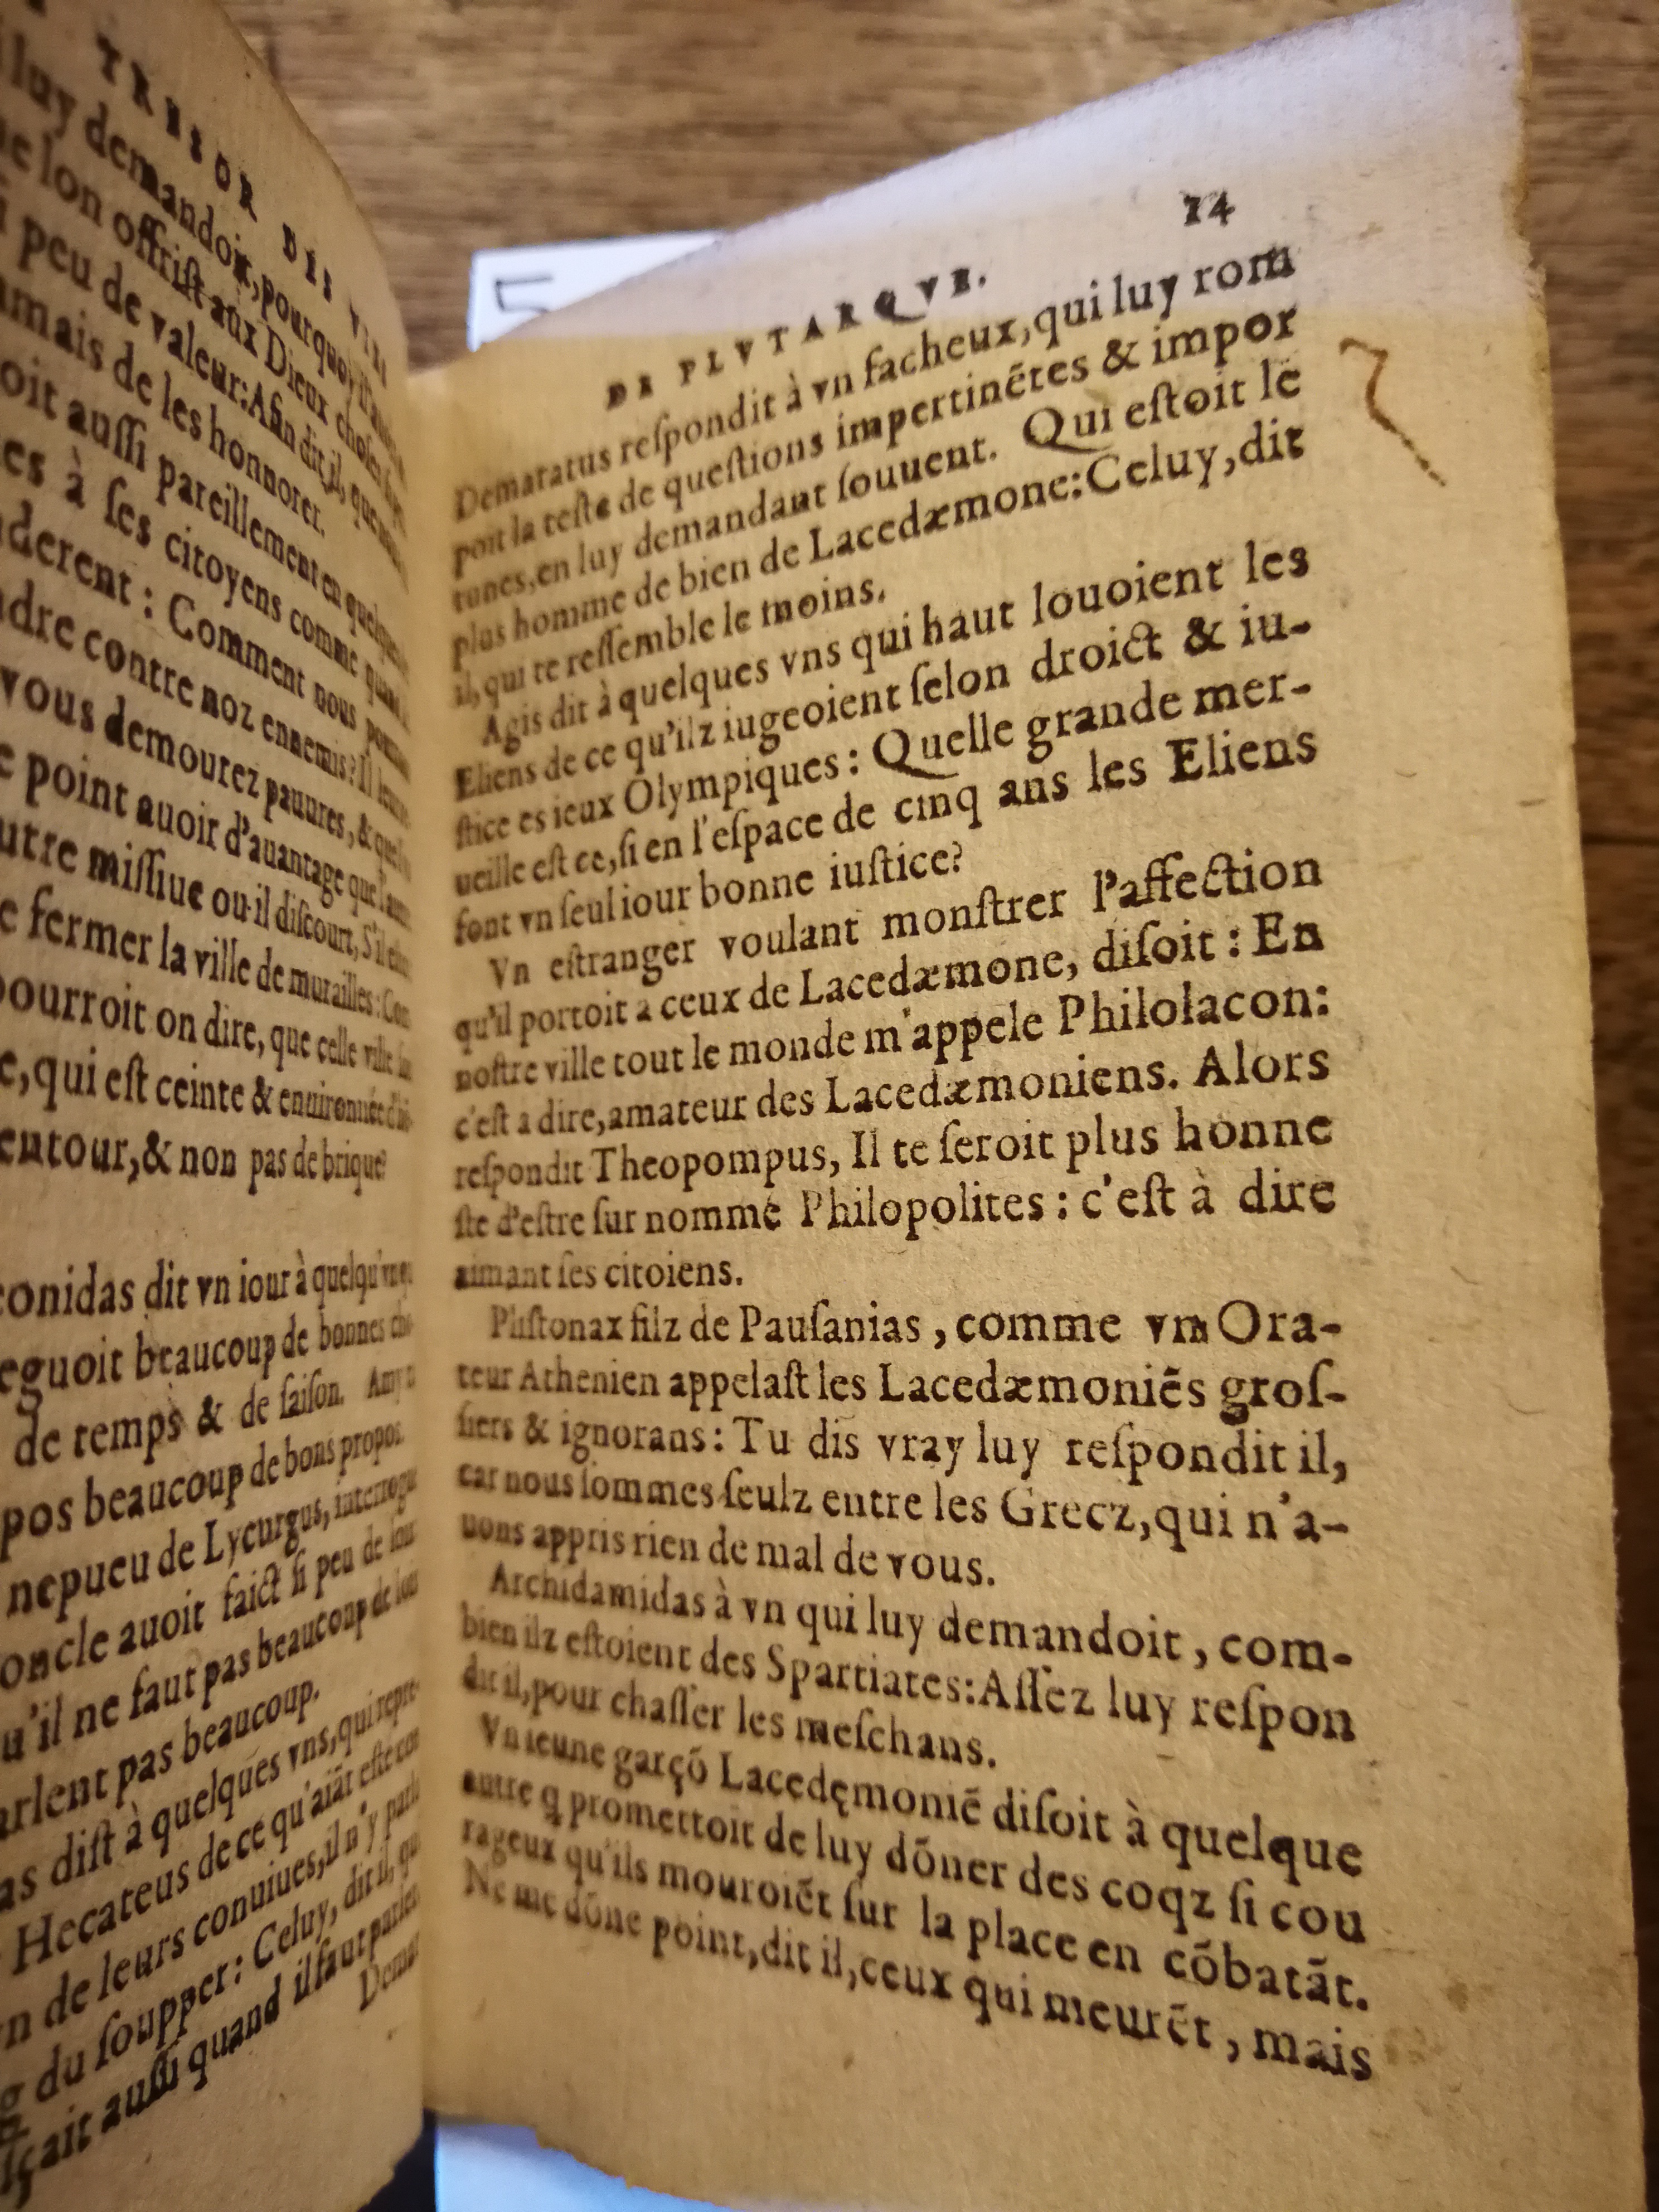 TRESOR DES VIES
luy demandoit, pourquoy il
lon offrist aux Dieux choses
peu de valeur: Afin dit il, que
mais de les honnorer.
oit aussi pareillement en quelques
es à ses citoyens comme quand
derent : Comment nous
dre contre noz ennemis? Il leur
vous demourez pauures, & que
e point auoir d'auantage que l'autre
utre missiue ou il discourt, S'il
e fermer la ville de murailles: Com
pourroit on dire, que celle ville
e, qui est ceinte & enuironnée
entour, & non pas de brique?
eonidas dit vn iour à quelqu'vn
eguoit beaucoup de bonnes
de temps & de saison.
pos beaucoup de bons propos
nepueu de Lycurgus, interrogé
oncle auoit faict si peu de
u'il ne faut pas beaucoup de
arlent pas beaucoup.
as dist à quelques vns, qui
Hecateus de ce qu'aiãt esté
n de leurs conuiues, il n'y
du soupper: Celuy, dit il,
sçait aussi quand il faut
Demar
DE PLVTARQVE.
24
Demaratus respondit à vn facheux, qui luy rom
poit la teste de questions impertinẽtes & impor
tunes, en luy demandant souuent. Qui estoit le
plus homme de bien de Lacedæmone: Celuy, dit
il, qui te ressemble le moins.
Agis dit à quelques vns qui haut louoient les
Eliens de ce qu'ilz iugeoient selon droict & iu-
stice es ieux Olympiques : Quelle grande mer-
ueille est ce, si en l'espace de cinq ans les Eliens
font vn seul iour bonne iustice?
Vn estranger voulant monstrer l'affection
qu'il portoit a ceux de Lacedæmone, disoit : En
nostre ville tout le monde m'appele Philolacon:
c'est a dire, amateur des Lacedæmoniens. Alors
respondit Theopompus, Il te seroit plus honne
ste d'estre sur nommé Philopolites : c'est à dire
aimant ses citoiens.
Plistonax filz de Pausanias , comme vn Ora-
teur Athenien appelast les Lacedæmoniẽs gros-
siers & ignorans : Tu dis vray luy respondit il,
car nous sommes seulz entre les Grecz, qui n'a-
uons appris rien de mal de vous.
Archidamidas à vn qui luy demandoit , com-
bien ilz estoient des Spartiates: Assez luy respon
dit il, pour chasser les meschans.
Vn ieune garçõ Lacedęmoniẽ disoit à quelque
autre q promettoit de luy dõner des coqz si cou
rageux qu'ils mouroiẽt sur la place en cõbatãt.
Ne me dõne point, dit il, ceux qui meurẽt , mais